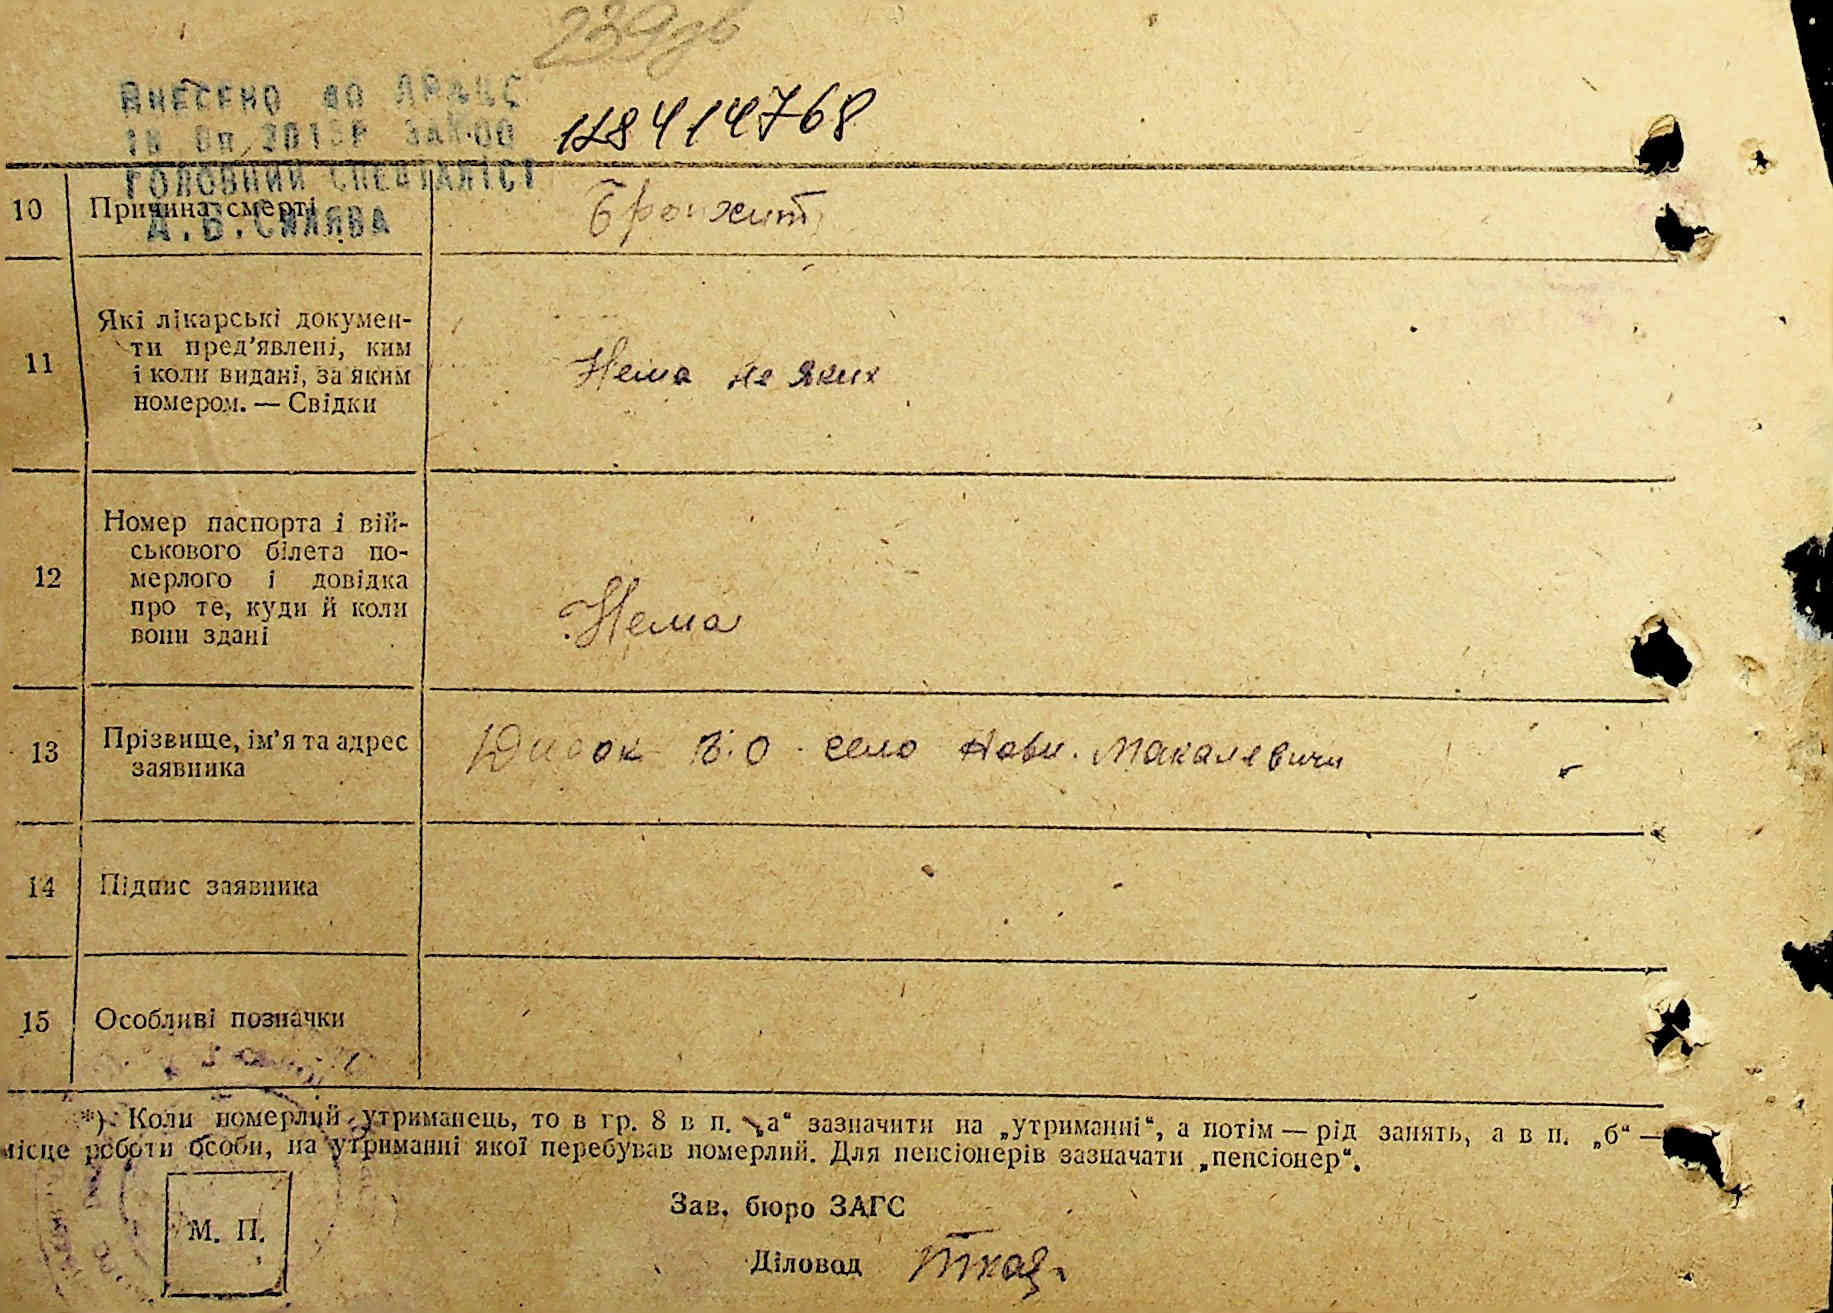 239
ВНЕСЕНО ДО ДРАЦС
ГОЛОВНИЙ СПЕЦІАЛІСТ
А.В.СИЛЯВА
10 Причина смерті Бронхит
11 Які лікарські докумен-
ти пред'явлені, ким
і коли видані, за яким
номером. — Свідки
Нема не яких
12 Номер паспорта і вій-
ськового білета по-
мерлого і довідка
про те, куди й коли
вони здані
Нема
13 Прізвище, ім'я та адрес
заявника
село Нови. Макалевичи
14 Підпис заявника
15 Особливі позначки
*) Коли померлий утриманець, то в гр. 8 в п. „а“ зазначити на „утриманні“, а потім — рід занять, а в п. „б“ —
місце роботи особи, на утриманні якої перебував померлий. Для пенсіонерів зазначати „пенсіонер“.
Зав. бюро ЗАГС
М. П.
Діловод